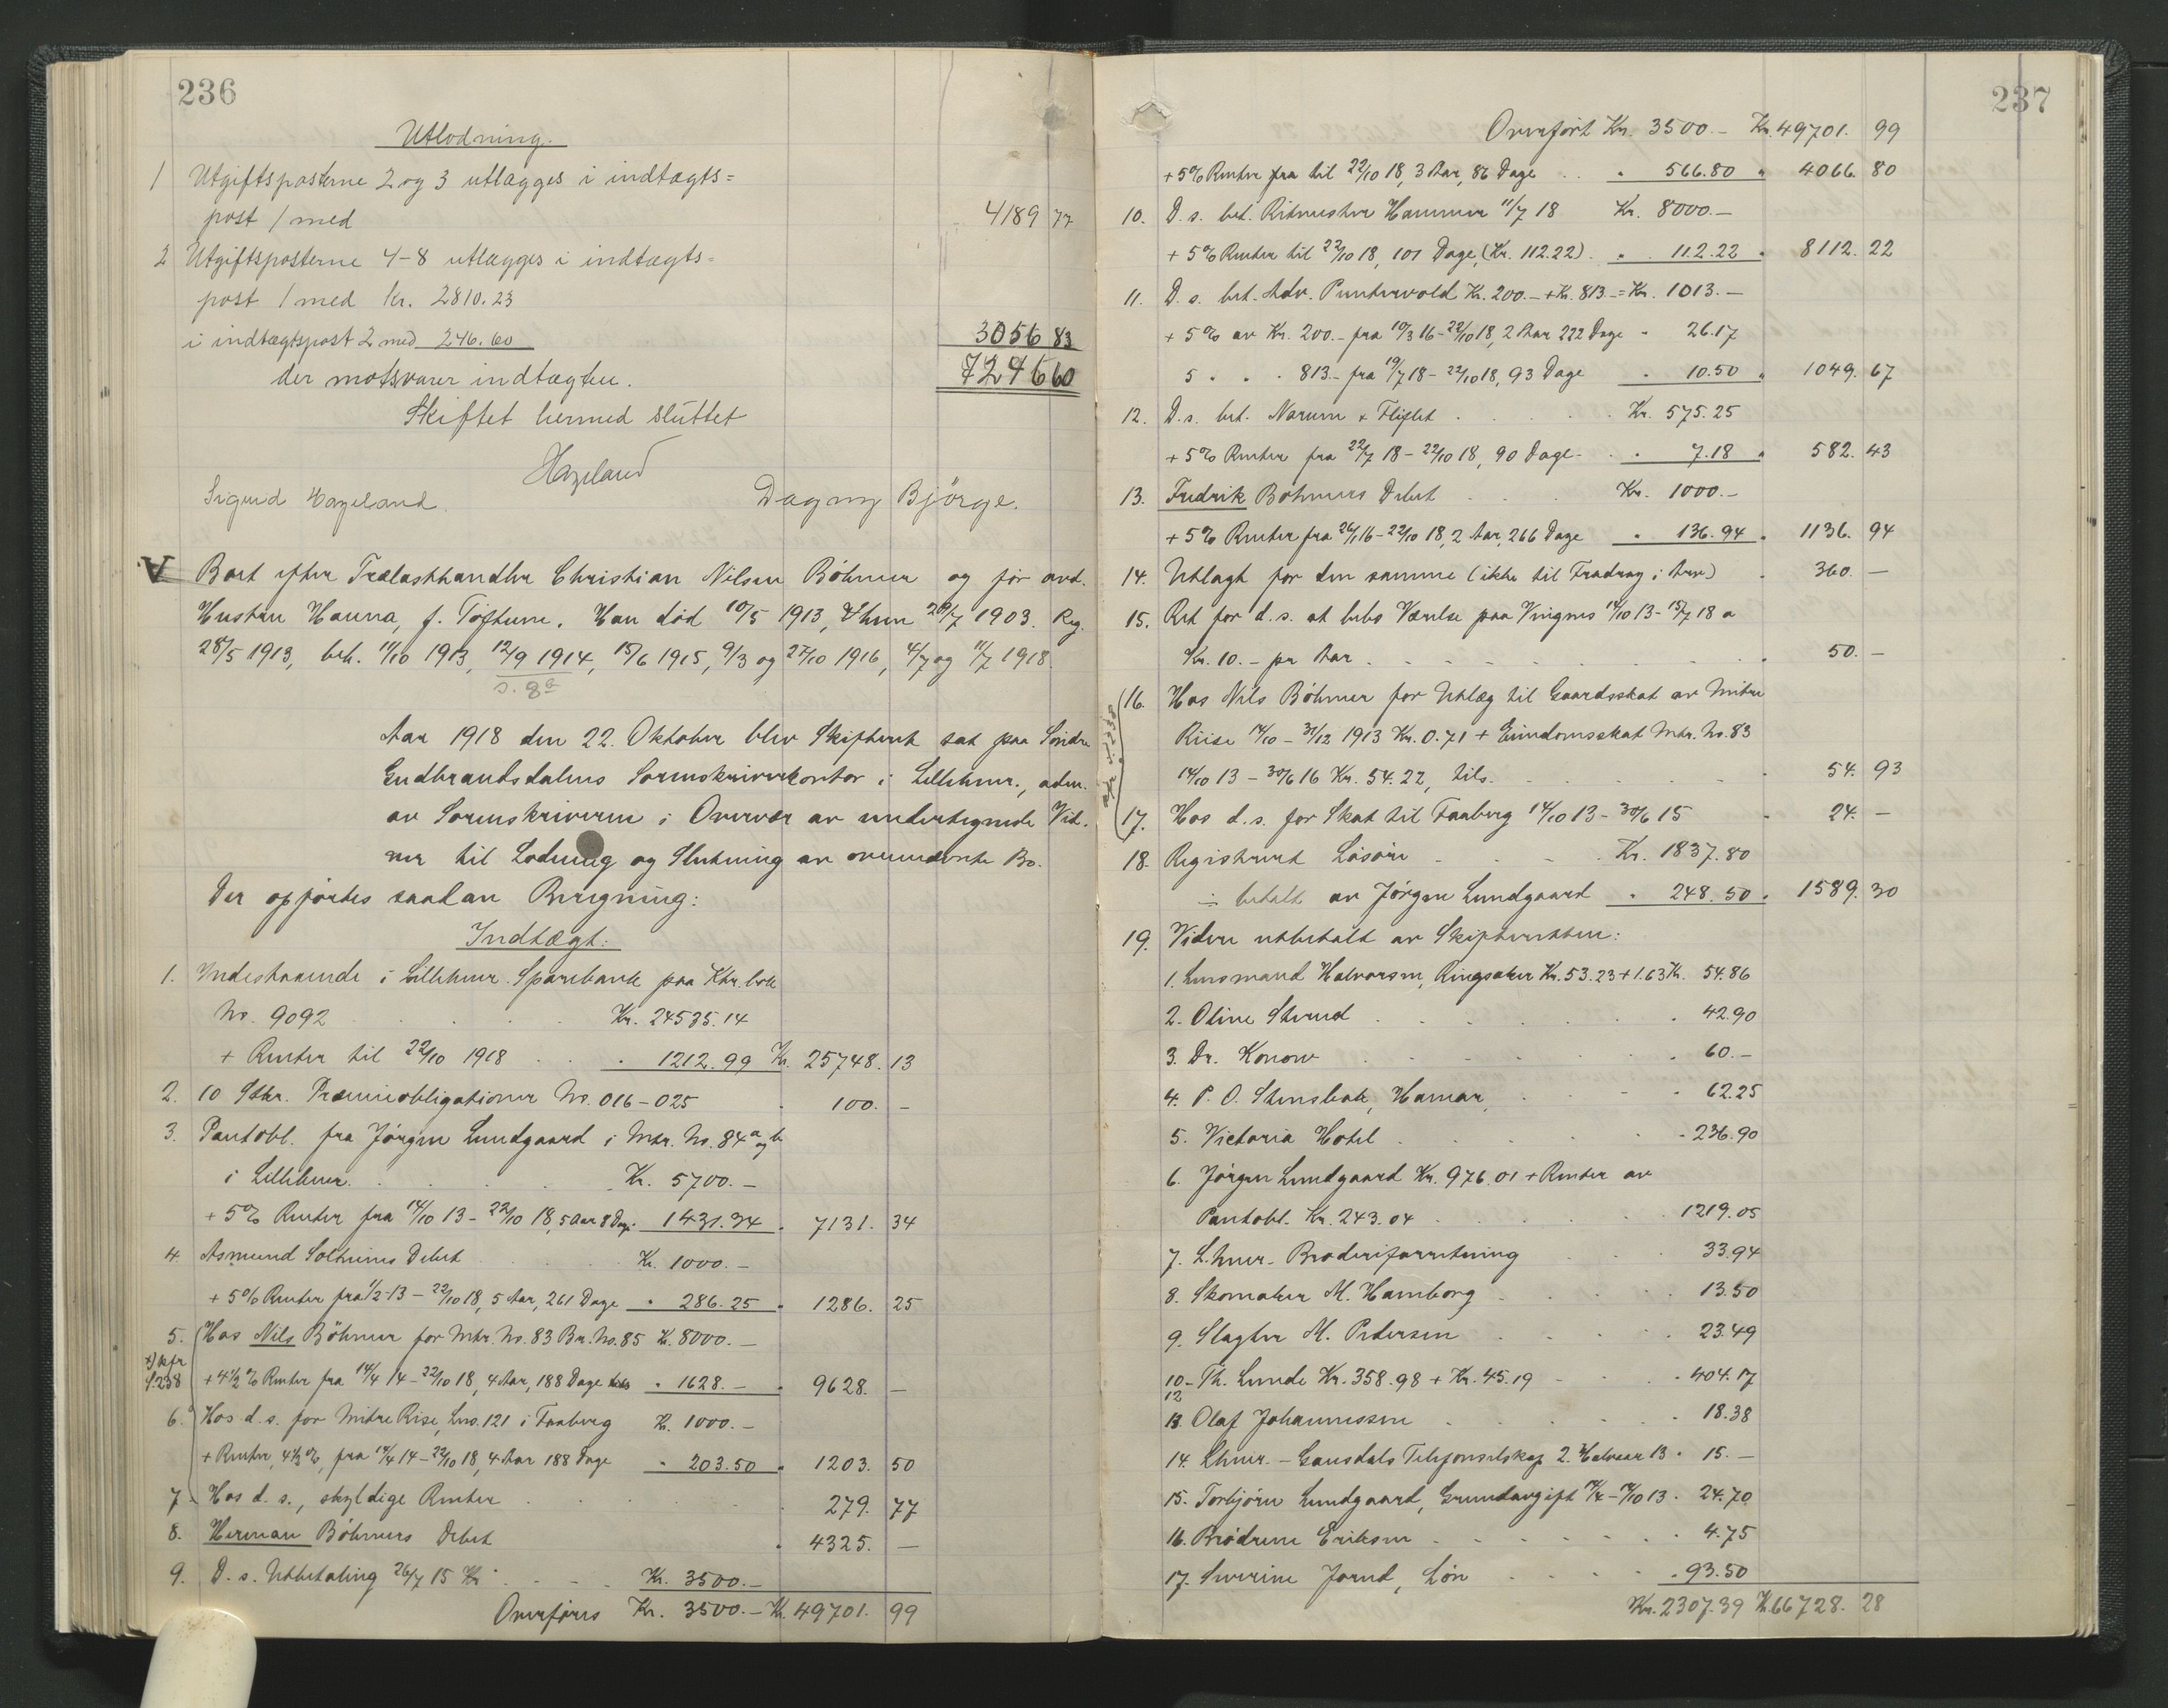 236
Utlodning.
1 Utgiftsposterne 2 og 3 utlægges i indtægts=
post 1 med 4189 77
2 Utgiftsposterne 4-8 utlægges i indtægts=
post 1 med kr. 2810.23
i indtægtspost 2 med 246.60 3056 83
der motsvarer indtægten. 7246 60
Skiftet hermed sluttet
Hazeland
Sigurd Hazeland. Dagny Bjørge.
V Boet efter Trælasthandler Christian Nilsen Böhmer og før avd.
Hustru Hanna, f. Töftum. Han död 10/5 1913, Hun 29/7 1903. Reg.
28/5 1913, beh. 14/10 1913, 12/9 1914, 15/6 1915, 9/3 og 27/10 1916, 4/7 og 11/7 1918.
s. 8 b
Aar 1918 den 22. Oktober blev Skifteret sat paa Søndre
Gudbrandsdalens Sorenskriverkontor i Lillehmr., adm.
av Sorenskriveren i Overvær av undertegnede Vid-
ner til Lodning og Slutning av ovennævnte Bo.
Der opførtes saadan Beregning:
Indtægt:
1. Indestaaende i Lillehmr. Sparebank paa Ktr. bok
No. 9092 . . . . Kr. 24535.14
+ Renter til 22/10 1918 . . " 1212.99 Kr. 25748. 13
2. 10 Stkr. Præmieobligationer No. 016-025 " 100. -
3. Pantobl. fra Jörgen Lundgaard i Mtr. No. 84 a og b
i Lillehmr. . . . . Kr. 5700.-
+ 5% Renter fra 14/10 13 - 22/10 18, 5 Aar 8 Dage " 1431.34 " 7131. 34
4. Asmund Solheims Debet Kr. 1000.-
+ 5% Renter fra 1/2-13 - 22/10 18, 5 Aar, 261 Dage " 286.25 " 1286. 25
5. Hos Nils Böhmer for Mtr. No. 83 Br. No. 85 Kr. 8000.-
x) kfr S. 238 + 4 1/2 % Renter fra 14/4 14 - 22/10 18, 4 Aar, 188 Dage " 1628.- " 9628. -
6. Hos d. s. for Mitre Rise, Lno. 121 i Faaberg Kr. 1000.-
+ Renter, 4 1/2 %, fra 14/4 14 - 22/10 18, 4 Aar 188 Dage " 203.50 " 1203. 50
7. Hos d. s., skyldige Renter . . . . 279. 77
8. Herman Böhmers Debet " 4325. -
9. D. s. Utbetaling 26/7 15 Kr . . . Kr. 3500.-
Overføres Kr. 3500.- Kr. 49701. 99
237
Overført Kr. 3500.- Kr. 49701. 99
+ 5% Renter fra til 22/10 18, 3 Aar, 86 Dage . . " 566.80 " 4066. 80
10. D. s. bet. Ritmester Hammer 11/7 18 Kr. 8000.-
+ 5% Renter til 22/10 18, 101 Dage, (Kr. 112.22) . " 112.22 " 8112. 22
11. D. s. bet. Adv. Puntervold Kr. 200.- + Kr. 813.- = Kr. 1013.-
+ 5% av Kr. 200.- fra 10/3 16 - 22/10 18, 2 Aar 222 Dage " 26.17
5 " " " 813.- fra 19/7 18 - 22/10 18, 93 Dage " 10.50 " 1049. 67
12. D. s. bet. Narum & Fliflet . . . Kr. 575.25
+ 5% Renter fra 22/7 18 - 22/10 18, 90 Dage . " 7.18 " 582. 43
13. Fredrik Böhmers Debet . . . Kr. 1000.-
+ 5% Renter fra 26/1 16 - 22/10 18, 2 Aar, 266 Dage " 136.94 " 1136. 94
14. Utlagt for den samme (ikke til Fradrag i Arv) " 360. -
15. Ret for d. s. at bebo Værelse paa Vingnes 14/10 13 - 15/7 18 a
Kr. 10.- pr Aar . . . . " 50. -
16. Hos Nils Böhmer for Utlæg til Gaardsskat av Mitre
Riise 14/10 - 31/12 1913 Kr. 0.71 + Eiendomsskat Mtr. No. 83
14/10 13 - 30/6 16 Kr. 54.22, tils. . . . . " 54. 93
17. Hos d. s. for Skat til Faaberg 14/10 13 - 30/6 15 " 24. -
18. Registreret Løsøre . . . Kr. 1837.80
÷ betalt av Jörgen Lundgaard " 248.50 " 1589. 30
19. Videre utbetalt av Skifteretten:
1. Lensmand Halvorsen, Ringsaker Kr. 53.23 + 1.63 Kr. 54.86
2. Oline Strand . . . . 42.90
3. Dr. Konow . . . . 60.-
4. P. O. Stensbak, Hamar, . . . 62.25
5. Victoria Hotel . . . . 236.90
6. Jörgen Lundgaard Kr. 976.01 + Renter av
Pantobl. Kr. 243.04 . . . . 1219.05
7. L.hmr. Broderiforretning . . 33.94
8. Skomaker M. Hamborg . . . 13.50
9. Slagter M. Pedersen . . . 23.49
10-12 Th. Lunde Kr. 358.98 + Kr. 45.19 . . . 404.17
13. Olaf Johannessen . . . . 18.38
14. Lhmr. - Gausdals Telefonselskap 2. Halvaar 13 " 15.-
15. Torbjörn Lundgaard, Grundavgift 14/4 - 14/10 13 " 24.70
16. Brødrene Eriksen . . . . 4.75
17. Severine Jorud, Løn . . . " 93.50
Kr. 2307.39 Kr. 66728. 28